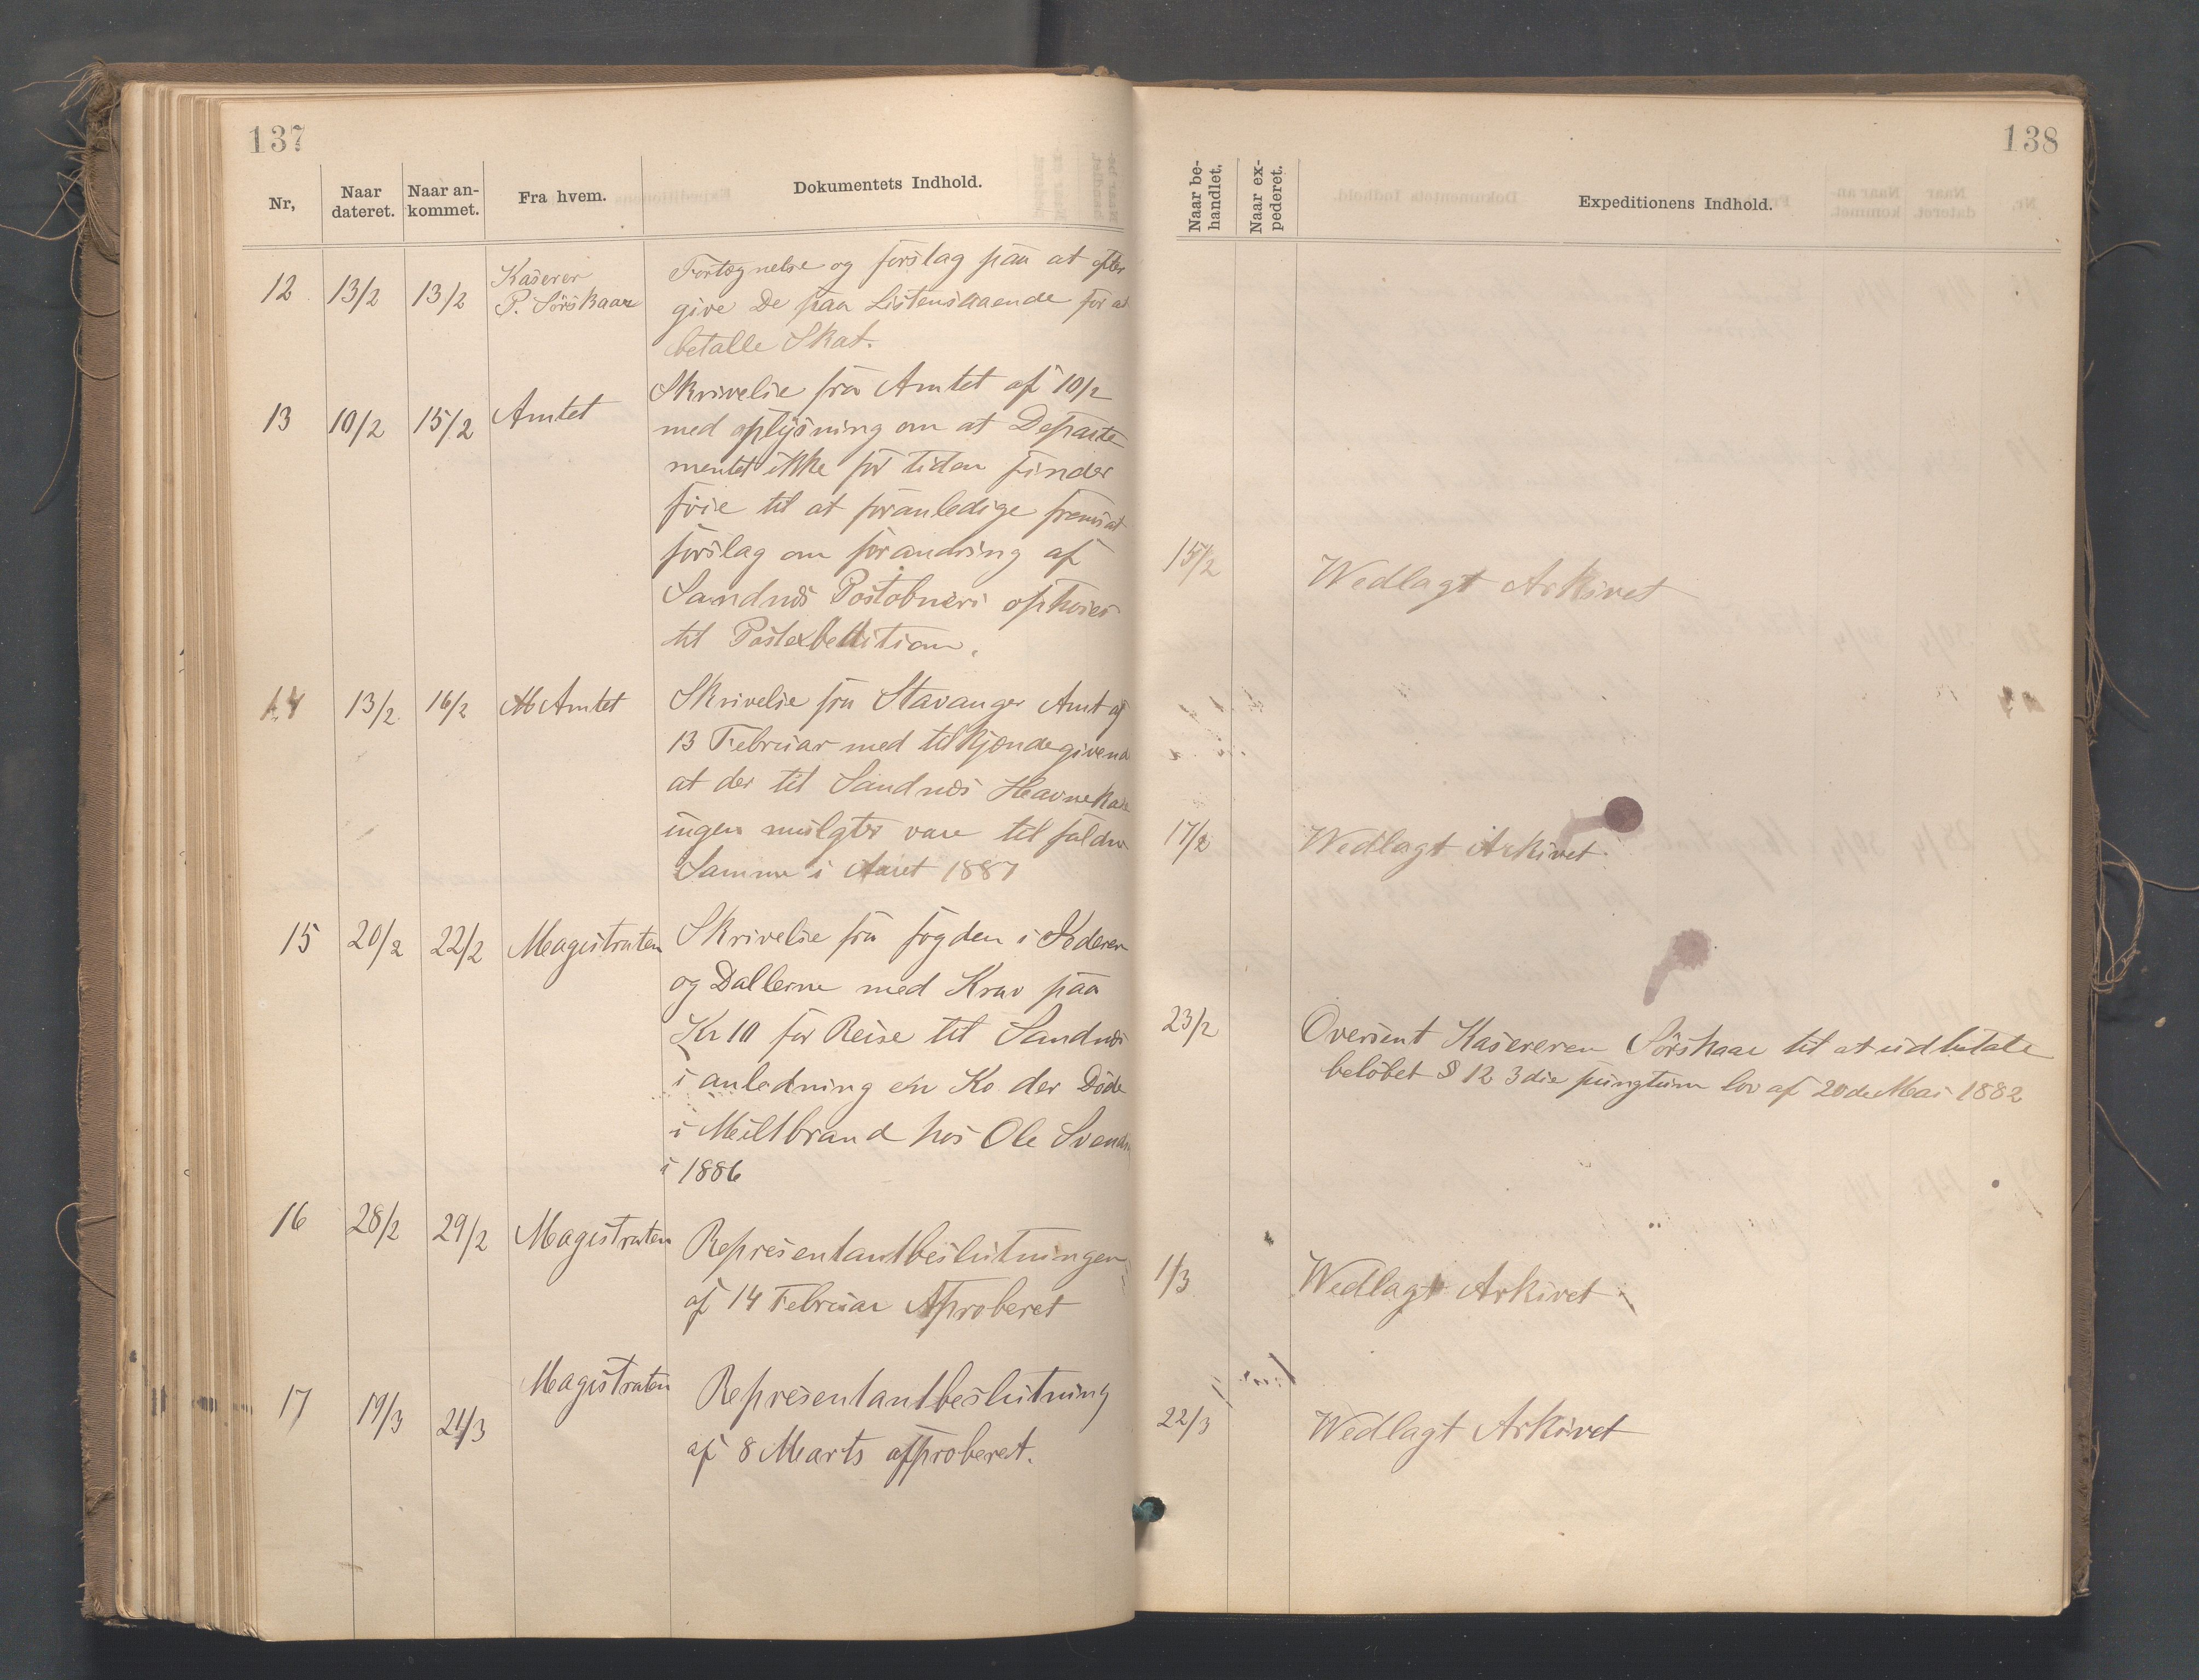 137
Nr,
Naar dateret.
Naar ankommet.
Fra hvem.
Dokumentets Indhold.
12 13/2 13/2 Kaserer
P. Sörskaar
Fortegnelse og forslag paa at efter
give De paa Listenstaaende for at
betalle Skat.
13 10/2 15/2 Amtet
Skrivelse fra Amtet af 10/2
med oplysning om at Departe
mentet ikke for tiden finder
föie til at foranledige fremsat
forslag om forandring af
Sandnæs Postobneri ophöies
til
14 13/2 16/2 Amtet
Skrivelse fra Stavanger Amt af
13 Februar med tilkjendegivend
at der til Sandnæs Havnekase
ingen mulgter vare til falden
Samme i Aaret 1887
15 20/2 22/2 Magistraten
Skrivelse fra fogden i Jederen
og Dallerne med Krav paa
Kr 10 for Reise til Sandnæs
i anledning en Ko der Döde
i Miltbrand hos Ole Svends
i 1886
16 28/2 29/2 Magistraten
Representantbeslutningen
af 14 Februar Aproberet
17 19/3 21/3 Magistraten
Representantbeslutning
af 8 Marts approberet.
138
Naar behandlet.
Naar expederet.
Expeditionens Indhold.
15/2 Wedlagt Arkivet
17/2 Wedlagt Arkivet
23/2 Oversent Kasereren Sörskaar til at udbetale
belöbet § 12 3die pungtum lov af 20de Mai 1882
1/3 Wedlagt Arkivet
22/3 Wedlagt Arkivet